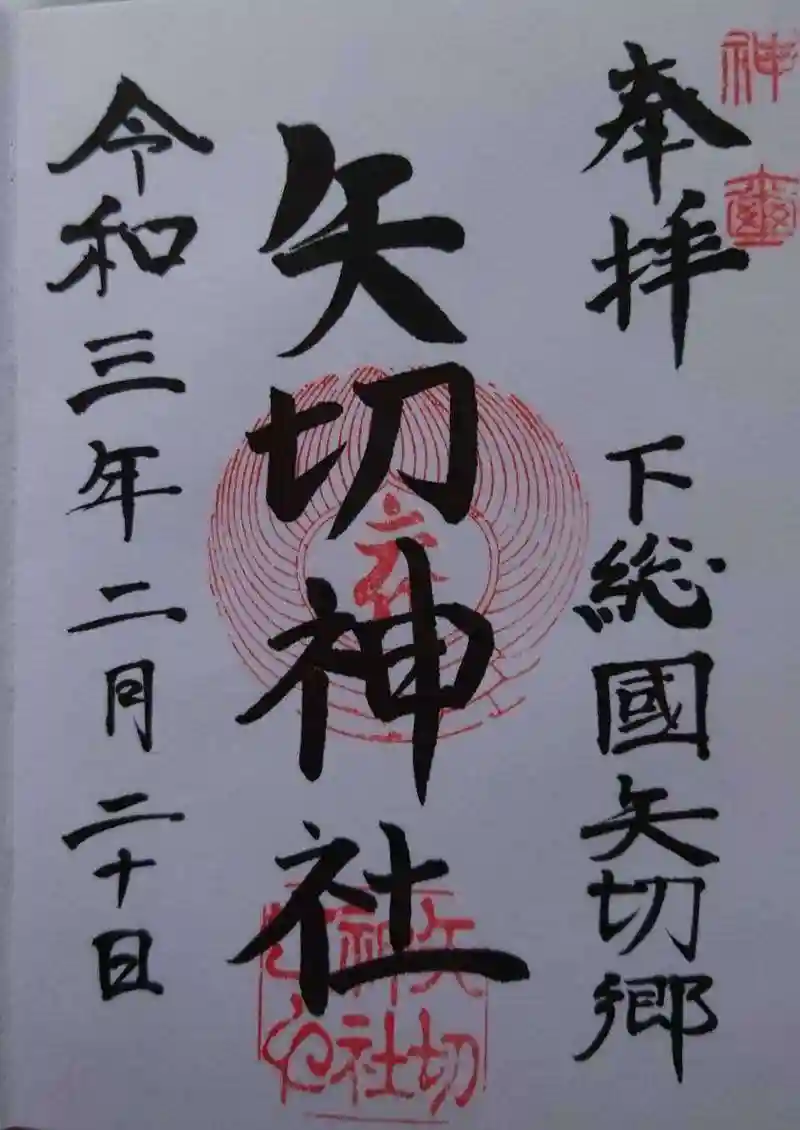 神璽
奉拝 下総國矢切郷
矢切神社
矢切
神社
令和三年二月二十日